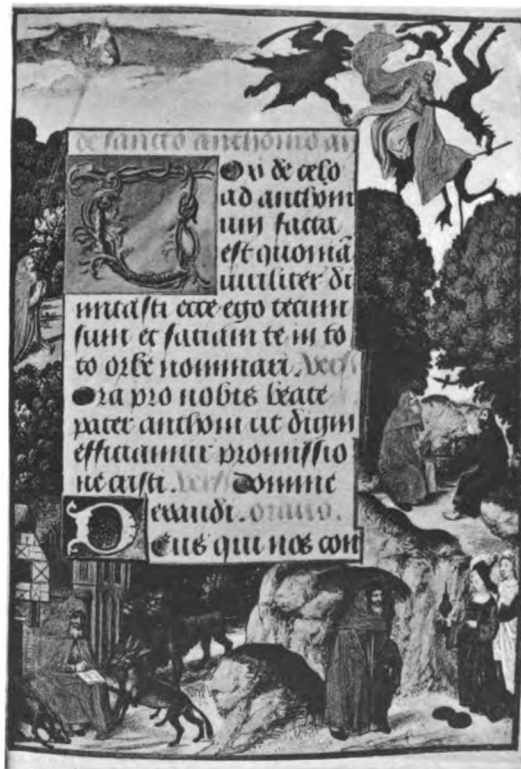 de sancto anthonio
Vox de celo
ad anthoni
um facta
est quoniã
uiriliter di
micasti ecce ego tecum
sum et faciam te in to
to orbe nominari. Vers
Ora pro nobis beate
pater anthoni ut digni
efficiamur promissio
ne cristi. Vers Domine
exaudi. Oratio.
Deus qui nos con